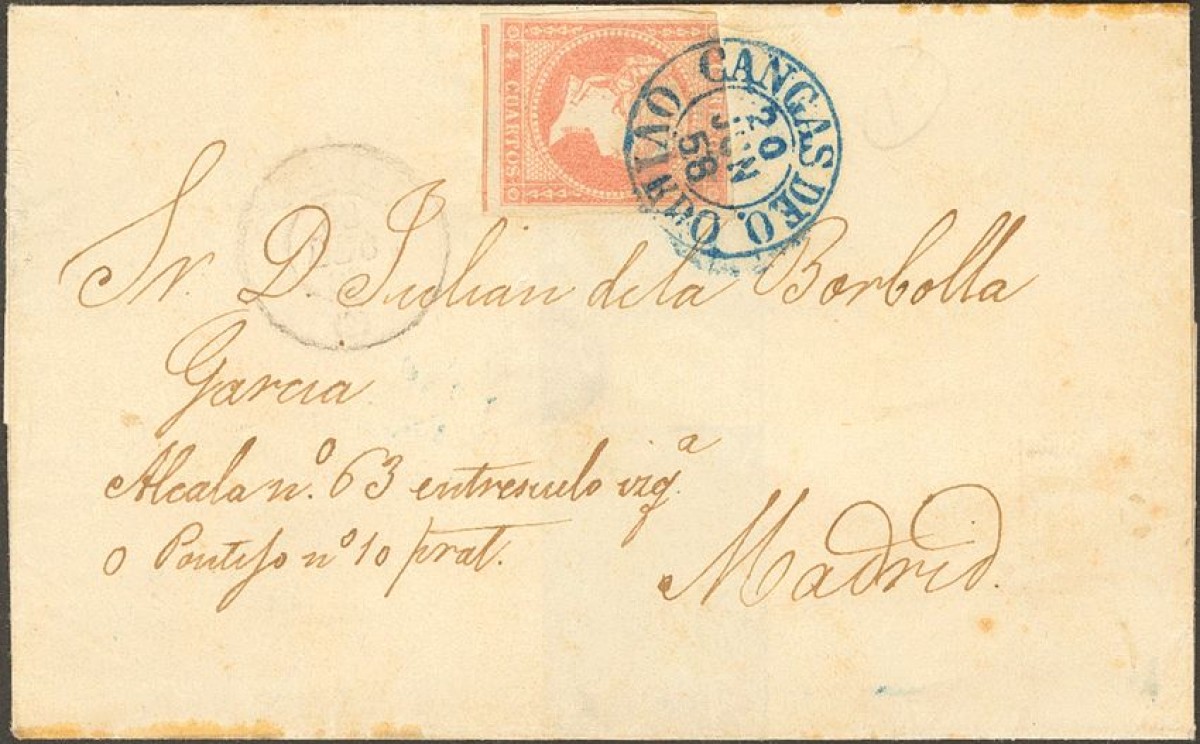 4 CUARTOS
CANGAS DE O.
20
JUN
58
Sr. D. Julian de la Borbolla
Garcia
Alcala nº. 63 entresuelo izqª
o Pontejo nº 10 pral.
Madrid.